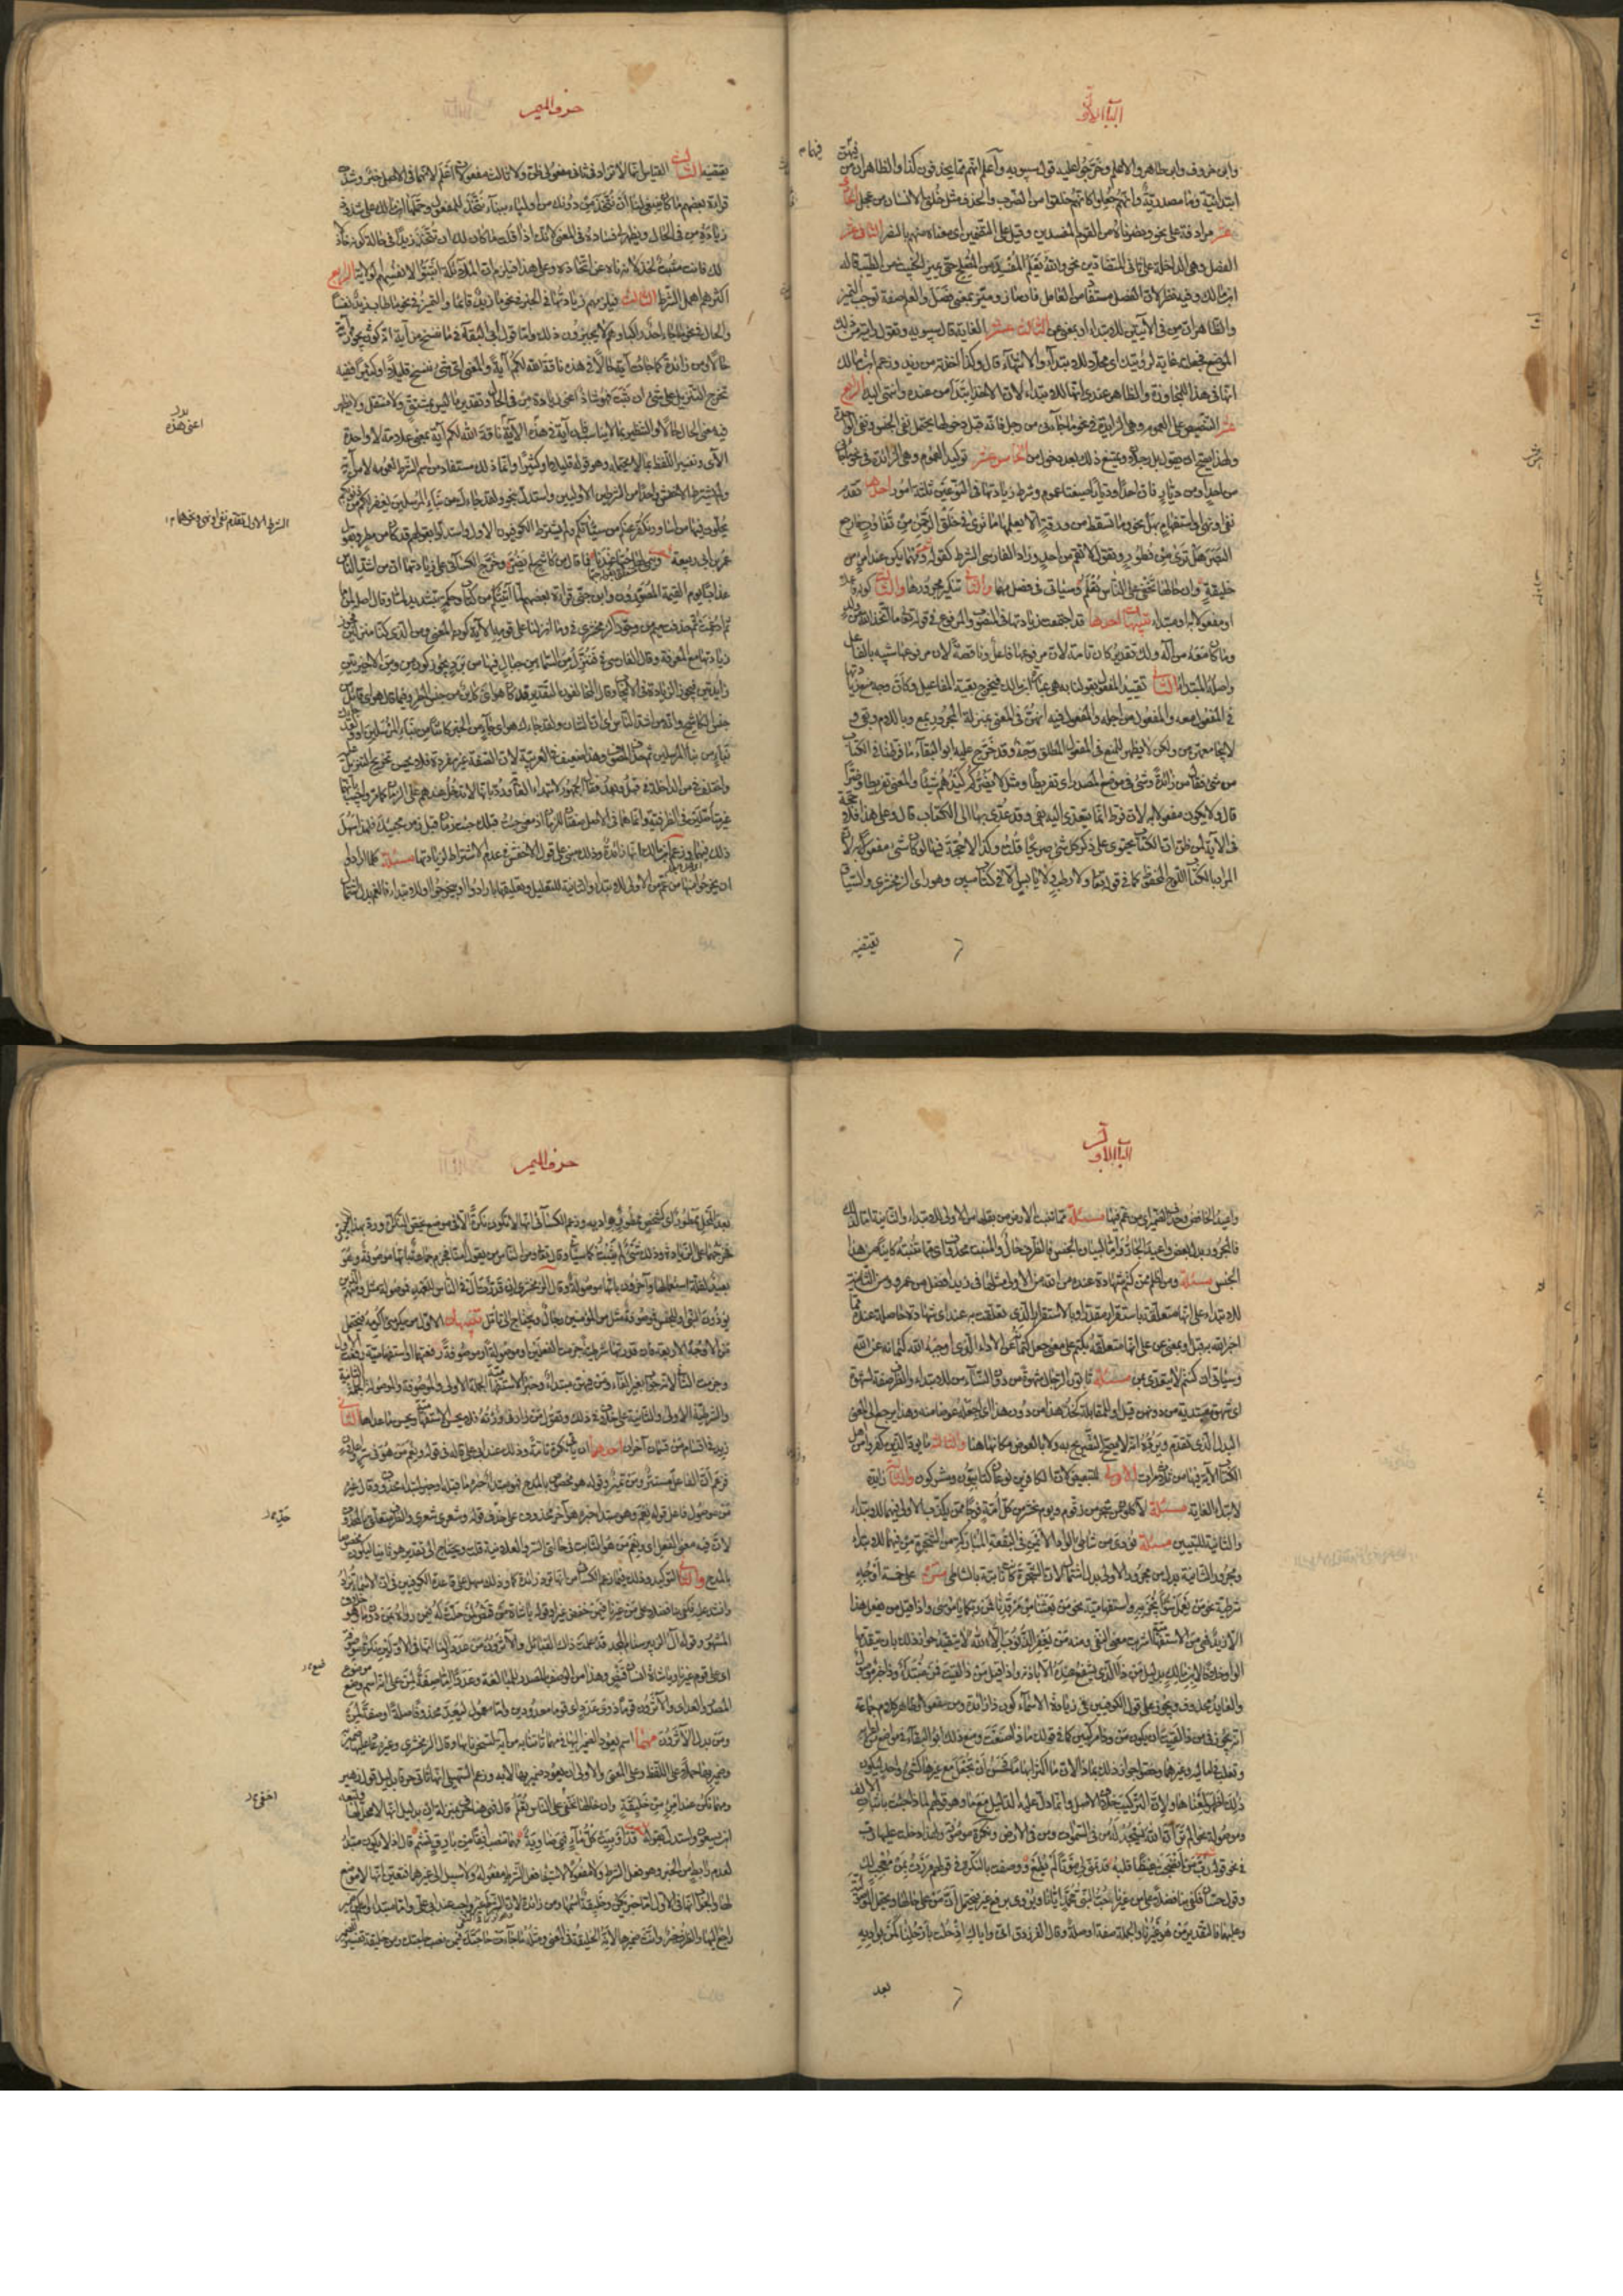 الباب الاول
وابن خروف وابن طاهر والاعلم وخرّجوا عليه قول سيبويه واعلم انهم مما يحذفون كذا والظاهر ان من
فيهما
ابتدائية وما مصدرية وانهم جعلوا كانهم خلقوا من الضرب والحذف مثل خلق الانسان من عجل الحادى
عشر مرادفة على نحو ونصرناه من القوم وقيل على التضمين اى منعناه منهم بالنصر الثانى عشر
الفصل وهى الداخلة على ثانى المتضادين نحو والله يعلم المفسد من المصلح حتى يميز الخبيث من الطيب قاله
ابن مالك وفيه نظر لان الفصل مستفاد من العامل فان ماز وميّز بمعنى فصل والعلم صفة توجب التمييز
والظاهر ان من فى الآيتين للابتداء او بمعنى عن الثالث عشر الغاية قال سيبويه وتقول رايته من ذلك
الموضع فجعلته غاية لرؤيتك اى محلا للابتداء والانتهاء قال وكذا اخذته من زيد وزعم ابن مالك
انها فى هذا للمجاوزة والظاهر عندى انها للابتداء لان الاخذ ابتدأ من عنده وانتهى اليك الرابع
عشر التنصيص على العموم وهى الزايدة فى نحو ما جاءنى من رجل فانه قبل دخولها يحتمل نفى الجنس ونفى الوحدة
ولهذا يصح ان يقول بل رجلان ويمتنع ذلك بعد دخول من الخامس عشر توكيد العموم وهى الزائدة فى نحو ما جاءنى
من احد او من ديّار فان احدا وديّارا صيغتا عموم وشرط زيادتها فى النوعين ثلثة امور احدها تقدم
نفى او نهى او استفهام بهل نحو وما تسقط من ورقة الا يعلمها ما ترى فى خلق الرحمن من تفاوت فارجع
البصر هل ترى من فطور وتقول لا تقم من احد وزاد الفارسى الشرط كقوله ومهما يكن عند امرئ من
خليقة وان خالها تخفى على الناس تعلم وسياتى فى فصل مهما والثانى تنكير مجرورها والثالث كونه فاعلا
او مفعولا به او مبتدأ تنبيهات احدها قد اجتمعت زيادتها فى المنصوب والمرفوع فى قوله تعالى ما اتخذ الله من ولد
وما كان معه من اله ولك تقدير كان تامة لان مرفوعها فاعل وناقصة لان مرفوعها شبيه بالفاعل
واصله المبتدأ الثانى تقييد المفعول بقولنا به هى عبارة ابن مالك فيخرج بقية المفاعيل وكأن وجه منع زيادتها
فى المفعول معه والمفعول من اجله والمفعول فيه انهن فى المعنى بمنزلة المجرور بمع وباللام وبفى و
لا تجامعهن من ولكن لا يظهر للمنع فى المفعول المطلق وجه وقد خرّج عليه ابو البقاء ما فرطنا فى الكتاب
من شئ فقال من زائدة وشئ فى موضع المصدر اى تفريطا ومثله لا يضركم كيدهم شيئا والمعنى تفريطا وضرا
قال ولا يكون مفعولا به لان فرط انما يتعدى اليه بفى وقد عدى بها الى الكتاب قال وعلى هذا فلا حجة
فى الآية لمن ظن ان الكتاب يحتوى على ذكر كل شئ صريحا قلت وكذا لا حجة فيها لو كان شئ مفعولا به لان
المراد بالكتاب اللوح المحفوظ كما فى قوله تعالى ولا رطب ولا يابس الا فى كتاب مبين وهو راى الزمخشرى والسياق
يقتضيه
حرف الميم
يقتضيه الثالث القياس انها لا تزاد فى ثانى مفعولى ظن ولا ثالث مفعولات اعلم لانهما فى الاصل خبر وشذت
قراءة بعضهم ما كان ينبغى لنا ان نتخذ من دونك من اولياء ببناء نتخذ للمفعول وحملها ابن مالك على شذوذ
زيادة من فى الحال ويظهر لى فساده فى المعنى لانك اذا قلت ما كان لك ان تتخذ زيدا فى حالة كونه خاذلا
لك فانت مثبت لخذلانه ناه عن اتخاذه وعلى هذا فيلزم ان الملائكة اثبتوا لانفسهم الولاية الرابع
اكثرهم اهمل الشرط الثالث فيلزمهم زيادتها فى الخبر فى نحو ما زيد قائما والتمييز فى نحو ما طاب زيد نفسا
والحال فى نحو ما جاء احد راكبا وهم لا يجيزون ذلك واما قول ابى البقاء فى ما ننسخ من آية انه يجوز كون آية
حالا ومن زائدة كما جاءت آية حالا فى هذه ناقة الله لكم آية والمعنى اى شئ ننسخ قليلا او كثيرا ففيه
تخريج التنزيل على شئ ان ثبت فهو شاذ اعنى زيادة من فى الحال وتقدير ما ليس بمشتق ولا منتقل ولا يظهر
فيه معنى الحال حالا والتنظير بما لا يناسب فان آية فى هذه ناقة الله لكم آية بمعنى علامة لا واحدة
الآى وتفسير اللفظ بما لا يحتمله وهو قوله قليلا او كثيرا وانما ذلك مستفاد من اسم الشرط لعمومه لا من آية
ولم يشترط الاخفش واحدا من الشرطين الاولين واستدل بنحو ولقد جاءك من نباء المرسلين يغفر لكم من ذنوبكم
يحلون فيها من اساور ويكفر عنكم من سيئاتكم ولم يشترط الكوفيون الاول واستدلوا بقولهم قد كان من مطر وبقول
عمر بن ابى ربيعة وينمى لها حبها عندنا فما قال من كاشح لم يضر وخرّج الكسائى على زيادتها ان من اشد الناس
عذابا يوم القيمة المصورون وابن جنى قراءة بعضهم لمّا آتيتكم من كتاب وحكمة بتشديد لما وقال اصله لمن ما
ثم ادغمت ثم حذفت ميم من وجوز الزمخشرى فى وما انزلنا على قومه الآية كون المعنى ومن الذى كنا منزلين فجوز
زيادتها مع المعرفة وقال الفارسى فى وننزل من السماء من جبال فيها من برد يجوز كون من ومن الاخيرتين
زايدتين فجوز الزيادة فى الايجاب وقال المخالفون التقدير قد كان هو اى كائن من جنس المطر وفما قال هو اى قائل من
جنس الكاشح وانه من اشد الناس اى ان الشان ولقد جاءك هو اى جاء من الخبر كائنا من نباء المرسلين او ولقد جاءك
نباء من نباء المرسلين ثم حذف الموصوف وهذا ضعيف فى العربية لان الصفة غير مفردة فلا يحسن تخريج التنزيل عليه
واختلف فى من الداخلة على قبل وبعد فقال الجمهور لابتداء الغاية وردّ بانها لا تدخل عندهم على الزمان كما مر واجيب بانهما
غير متأصلين فى الظرفية وانما هما فى الاصل صفتان للزمان اذ معنى جئت قبلك جئت زمنا قبل زمن مجيئك فلهذا سهل
ذلك فيهما وزعم ابن مالك انها زائدة وذلك مبنى على قول الاخفش فى عدم الاشتراط لزيادتها مسئلة كلما ارادوا
ان يخرجوا منها من غم من الاولى للابتداء والثانية للتعليل وتعلقها بارادوا او بيخرجوا او للابتداء فالغم بدل اشتمال
اعنى هذه
الشرط الاول تقدم نفى او نهى وغيرهما
الباب الاول
واعيد الخافض وحذف الضمير اى من غم فيها مسئلة مما تنبت الارض من بقلها من الاولى للابتداء والثانية اما كذلك
فالمجرور بدل بعض واعيد الجار واما لبيان الجنس فالظرف حال والمنبت محذوف اى مما تنبته كاينا من هذا
الجنس مسئلة ومن اظلم ممن كتم شهادة عنده من الله من الاولى مثلها فى زيد افضل من عمرو ومن الثانية
للابتداء على انها متعلقة باستقرار مقدر او بالاستقرار الذى تعلقت به عند اى شهادة حاصلة عنده مما
اخبر الله به قيل او بمعنى عن على انها متعلقة بكتم على معنى جعل كتمانه عن الاداء الذى اوجبه الله كتمانه عن الله
وسياتى ان كتم لا يتعدى بمن مسئلة أتاتون الرجال شهوة من دون النساء من للابتداء والظرف صفة لشهوة
اى شهوة مبتدئة من دونهن قيل او للمقابلة كخذ هذا من دون هذا اى اجعله عوضا منه وهذا يرجع الى معنى
البدل الذى تقدم ويرده انه لا يصح التصريح به ولا بالعوض مكانها هنا والثالثة ما يود الذين كفروا من اهل
الكتاب الآية فيها من ثلاث مرات الاولى للتبعيض لان الكافرين نوعان كتابيون ومشركون والثانية زائدة
لابتداء الغاية مسئلة لآكلون من شجر من زقوم ويوم نحشر من كل امة فوجا ممن يكذب الاولى فيهما للابتداء
والثانية للتبيين مسئلة نودى من شاطئ الواد الايمن فى البقعة المباركة من الشجرة من فيهما للابتداء
ومجرور الثانية بدل من مجرور الاولى بدل اشتمال لان الشجرة كانت نابتة بالشاطى من على خمسة اوجه
شرطية نحو من يعمل سوءا يجز به واستفهامية نحو من بعثنا من مرقدنا فمن ربكما يا موسى واذا قيل من يفعل هذا
الا زيد فهى من الاستفهامية اشربت معنى النفى ومنه ومن يغفر الذنوب الا الله ولا يتقيد جواز ذلك بان يتقدمها
الواو خلافا لابن مالك بدليل من ذا الذى يشفع عنده الا باذنه واذا قيل من ذا لقيت فمن مبتدأ وذا خبر موصول
والعائد محذوف ويجوز على قول الكوفيين فى زيادة الاسماء كون ذا زائدة ومن مفعولا وظاهر كلام جماعة
انه يجوز فى من ذا لقيت ان يكون من وذا مركبتين كما فى قولك ماذا صنعت ومنع ذلك ابو البقاء فى مواضع من اعرابه
وثعلب فى اماليه وغيرهما وخصوا جواز ذلك بماذا لان ما اكثر ابهاما فحسن ان تجعل مع غيرها كشئ واحد ليكون
ذلك اظهر لمعناها ولان التركيب خلاف الاصل وانما دل عليه الدليل مع ما وهو قولهم لماذا جئت باثبات الالف
وموصولة نحو الم تر ان الله يسجد له من فى السموات ومن فى الارض ونكرة موصوفة ولهذا دخلت عليها رب
فى نحو قوله رب من انضجت غيظا قلبه قد تمنى لى موتا لم يطع ووصفت بالنكرة فى قولهم مررت بمن معجب لك
وقول حسان فكفى بنا فضلا على من غيرنا حب النبى محمد ايانا ويروى برفع غير فيحتمل ان من على حالها ويحتمل الموصولية
وعليهما فالتقدير من هو غيرنا والجملة صفة او صلة وقال الفرزدق انى واياك اذ حلت بارحلنا كمن بواديه
بعد
حرف الميم
بعد المحل ممطور اى كشخص ممطور بواديه وزعم الكسائى انها لا تكون نكرة الا فى موضع يختص النكرات ورد بهذين البيتين
فخرجهما على الزيادة وذلك شئ لم يثبت كما سياتى وقال تعالى ومن الناس من يقول آمنا فجزم جماعة بانها موصوفة وهو
بعيد لقلة استعمالها وآخرون بانها موصولة وقال الزمخشرى ان قدرت ال فى الناس للعهد فموصولة مثل ومنهم الذين
يؤذون النبى او للجنس فموصوفة مثل من المؤمنين رجال ويحتاج الى تامل تنبيهات الاول من يكرمنى اكرمه فيحتمل
من الاوجه الاربعة فان قدرتها شرطية جزمت الفعلين او موصولة او موصوفة رفعتهما او استفهامية رفعت الاول
وجزمت الثانى لانه جواب بغير الفاء ومن فيهن مبتدأ وخبر الاستفهامية الجملة الاولى والموصوفة والموصولة الجملة الثانية
والشرطية الاولى او الثانية على خلاف فى ذلك وتقول من زارنى زرته فلا يحسن الاستفهام ويحسن ما عداها الثانى
زيد فى اقسام من قسمان آخران احدهما ان يأتى نكرة تامة وذلك عند ابى على قاله فى قوله ونعم من هو فى سر واعلان
فزعم ان الفاعل مستتر ومن تمييز وقوله هو مخصوص بالمدح فهو مبتدأ خبره ما قبله او خبر لمبتدأ محذوف وقال غيره
من موصول فاعل قوله نعم وهو مبتدأ خبره هو آخر محذوف على حد قوله وشعرى شعرى والظرف متعلق بالمحذوف
لان فيه معنى الفعل اى ونعم من هو الثابت فى حالتى السر والعلانية قلت ويحتاج الى تقدير هو ثالثا ليكون مخصوصا
بالمدح والثانى التوكيد وذلك فيما زعم الكسائى من انها ترد زائدة كما وذلك سهل على قاعدة الكوفيين فى ان الاسماء تزاد
وانشد عليه فكفى بنا فضلا على من غيرنا فيمن خفض غيرنا وقوله يا شاة من قنص لمن حلت له فيمن رواه بمن دون ما وهو خلاف
المشهور وقوله آل الزبير سنام المجد قد علمت ذاك القبائل والاثرون من عددا ولنا انها فى الاولين نكرة موصوفة
اى على قوم غيرنا ويا شاة انسان قنص وهذا من الوصف بالمصدر للمبالغة وعددا اما صفة لمن على انه اسم وضع موضع
المصدر والعدد اى والاثرون قوما ذوى عدد اى قوما معدودين واما معمول ليعد محذوفا صلة او صفة لمن
ومن بدل من الاثرون مهما اسم يعود الضمير اليها فى مهما تأتنا به من آية لتسحرنا بها وقال الزمخشرى وغيره عاد عليها ضمير
وضمير بها حملا على اللفظ وعلى المعنى والاولى ان يعود ضمير بها لآية وزعم السهيلى انها تاتى حرفا بدليل قول زهير
ومهما تكن عند امرئ من خليقة وان خالها تخفى على الناس تعلم قال فهى هنا حرف بمنزلة ان بدليل انها لا محل لها وتبعه
ابن يسعون واستدل بقوله قد اوبيت كل ماء فهى ضاوية مهما تصب افقا من بارق تشم قال اذ لا يكون مبتدأ
لعدم رابط من الخبر وهو فعل الشرط ولا مفعولا لاستيفاء فعل الشرط مفعوله ولا سبيل الى غيرهما فتعين انها لا موضع
لها والجواب انها فى الاول اما خبر تكن وخليقة اسمها ومن زائدة لان الشرط غير واجب عند ابى على واما مبتدأ واسم تكن ضمير
راجع اليها والظرف خبر وانث ضميرها لانها الخليقة فى المعنى ومثله ما جاءت حاجتك فيمن نصب حاجتك ومن خليقة تفسير للضمير